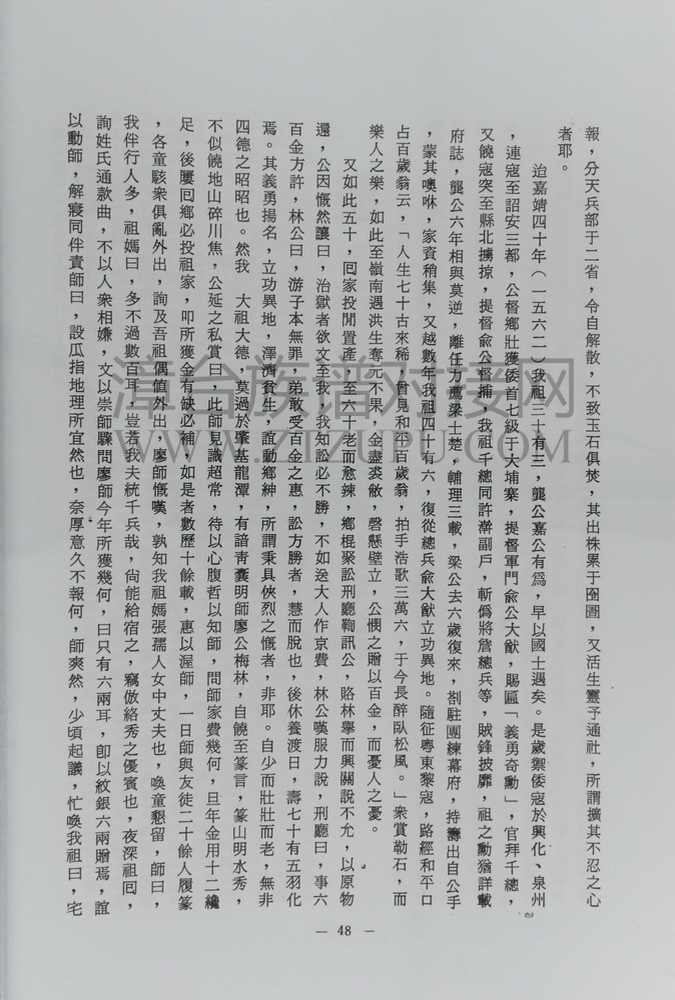 報，分天兵部于二省，令自解散，不致玉石俱焚，其出株累于囹圄，又活生靈予通社，所謂擴其不忍之心
者耶。
迨嘉靖四十年（一五六二）我祖三十有三，龔公嘉公有爲，早以國士遇矣。是歲禦倭寇於興化、泉州
，連寇至詔安三都，公督鄉壯獲倭首七級于大埔寨，提督軍門俞公大猷，賜匾「義勇奇勳」，官拜千總，
又饒寇突至縣北擄掠，提督俞公督捕，我祖千總同許澣副戶，斬僞將詹總兵等，賊鋒披靡，祖之勳猶詳載
府誌，龔公六年相與莫逆，離任力薦梁士楚，輔理三載，梁公去六歲復來，剳駐團練幕府，持籌出自公手
，蒙其噢咻，家資稍集，又越數年我祖四十有六，復從總兵俞大猷立功異地。隨征粵東黎寇，路經和平口
占百歲翁云，「人生七十古來稀，曾見和平百歲翁，拍手浩歌三萬六，于今長醉臥松風。」衆賞勒石，而
樂人之樂，如此至嶺南遇洪生奪元不果，金盡裘敝，磬懸壁立，公憫之贈以百金，而憂人之憂。
又如此五十，囘家投閒置產，至六十老而愈辣，鄉棍聚訟刑廳鞫訊公，賂林舉而興關說不允，以原物
還，公因慨然讓曰，治獄者欲文至我，我知訟必不勝，不如送大人作京費，林公嘆服力說，刑廳曰，事六
百金方許，林公曰，游子本無罪，弟敢受百金之惠，訟方勝者，慧而脫也，後休養渡日，壽七十有五羽化
焉。其義勇揚名，立功異地，澤濟貧生，誼動鄉紳，所謂秉具俠烈之慨者，非耶。自少而壯壯而老，無非
四德之昭昭也。然我　大祖大德，莫過於肇基龍潭，有諳青囊明師廖公梅林，自饒至篆言，篆山明水秀，
不似饒地山碎川焦，公延之私賞曰，此師見識超常，待以心腹哲以知師，問師家費幾何，旦年金用十二纔
足，後屢囘鄉必投祖家，叩所獲金有缺必補，如是者數歷十餘載，惠以渥師，一日師與友徒二十餘人履篆
，各童駭衆俱亂外出，詢及吾祖偶値外出，廖師慨嘆，孰知我祖媽張孺人女中丈夫也，喚童懇留，師曰，
我伴行人多，祖媽曰，多不過數百耳，豈若我夫統千兵哉，尙能給宿之，竊倣絡秀之優賓也，夜深祖囘，
詢姓氏通款曲，不以人衆相嫌，文以崇師驟問廖師今年所獲幾何，曰只有六兩耳，卽以紋銀六兩贈焉，誼
以動師，解寢同伴責師曰，設瓜指地理所宜然也，奈厚意久不報何，師爽然，少頃起議，忙喚我祖曰，宅
— 48 —
漳台族谱对接网
WWW.ZTZUPU.COM